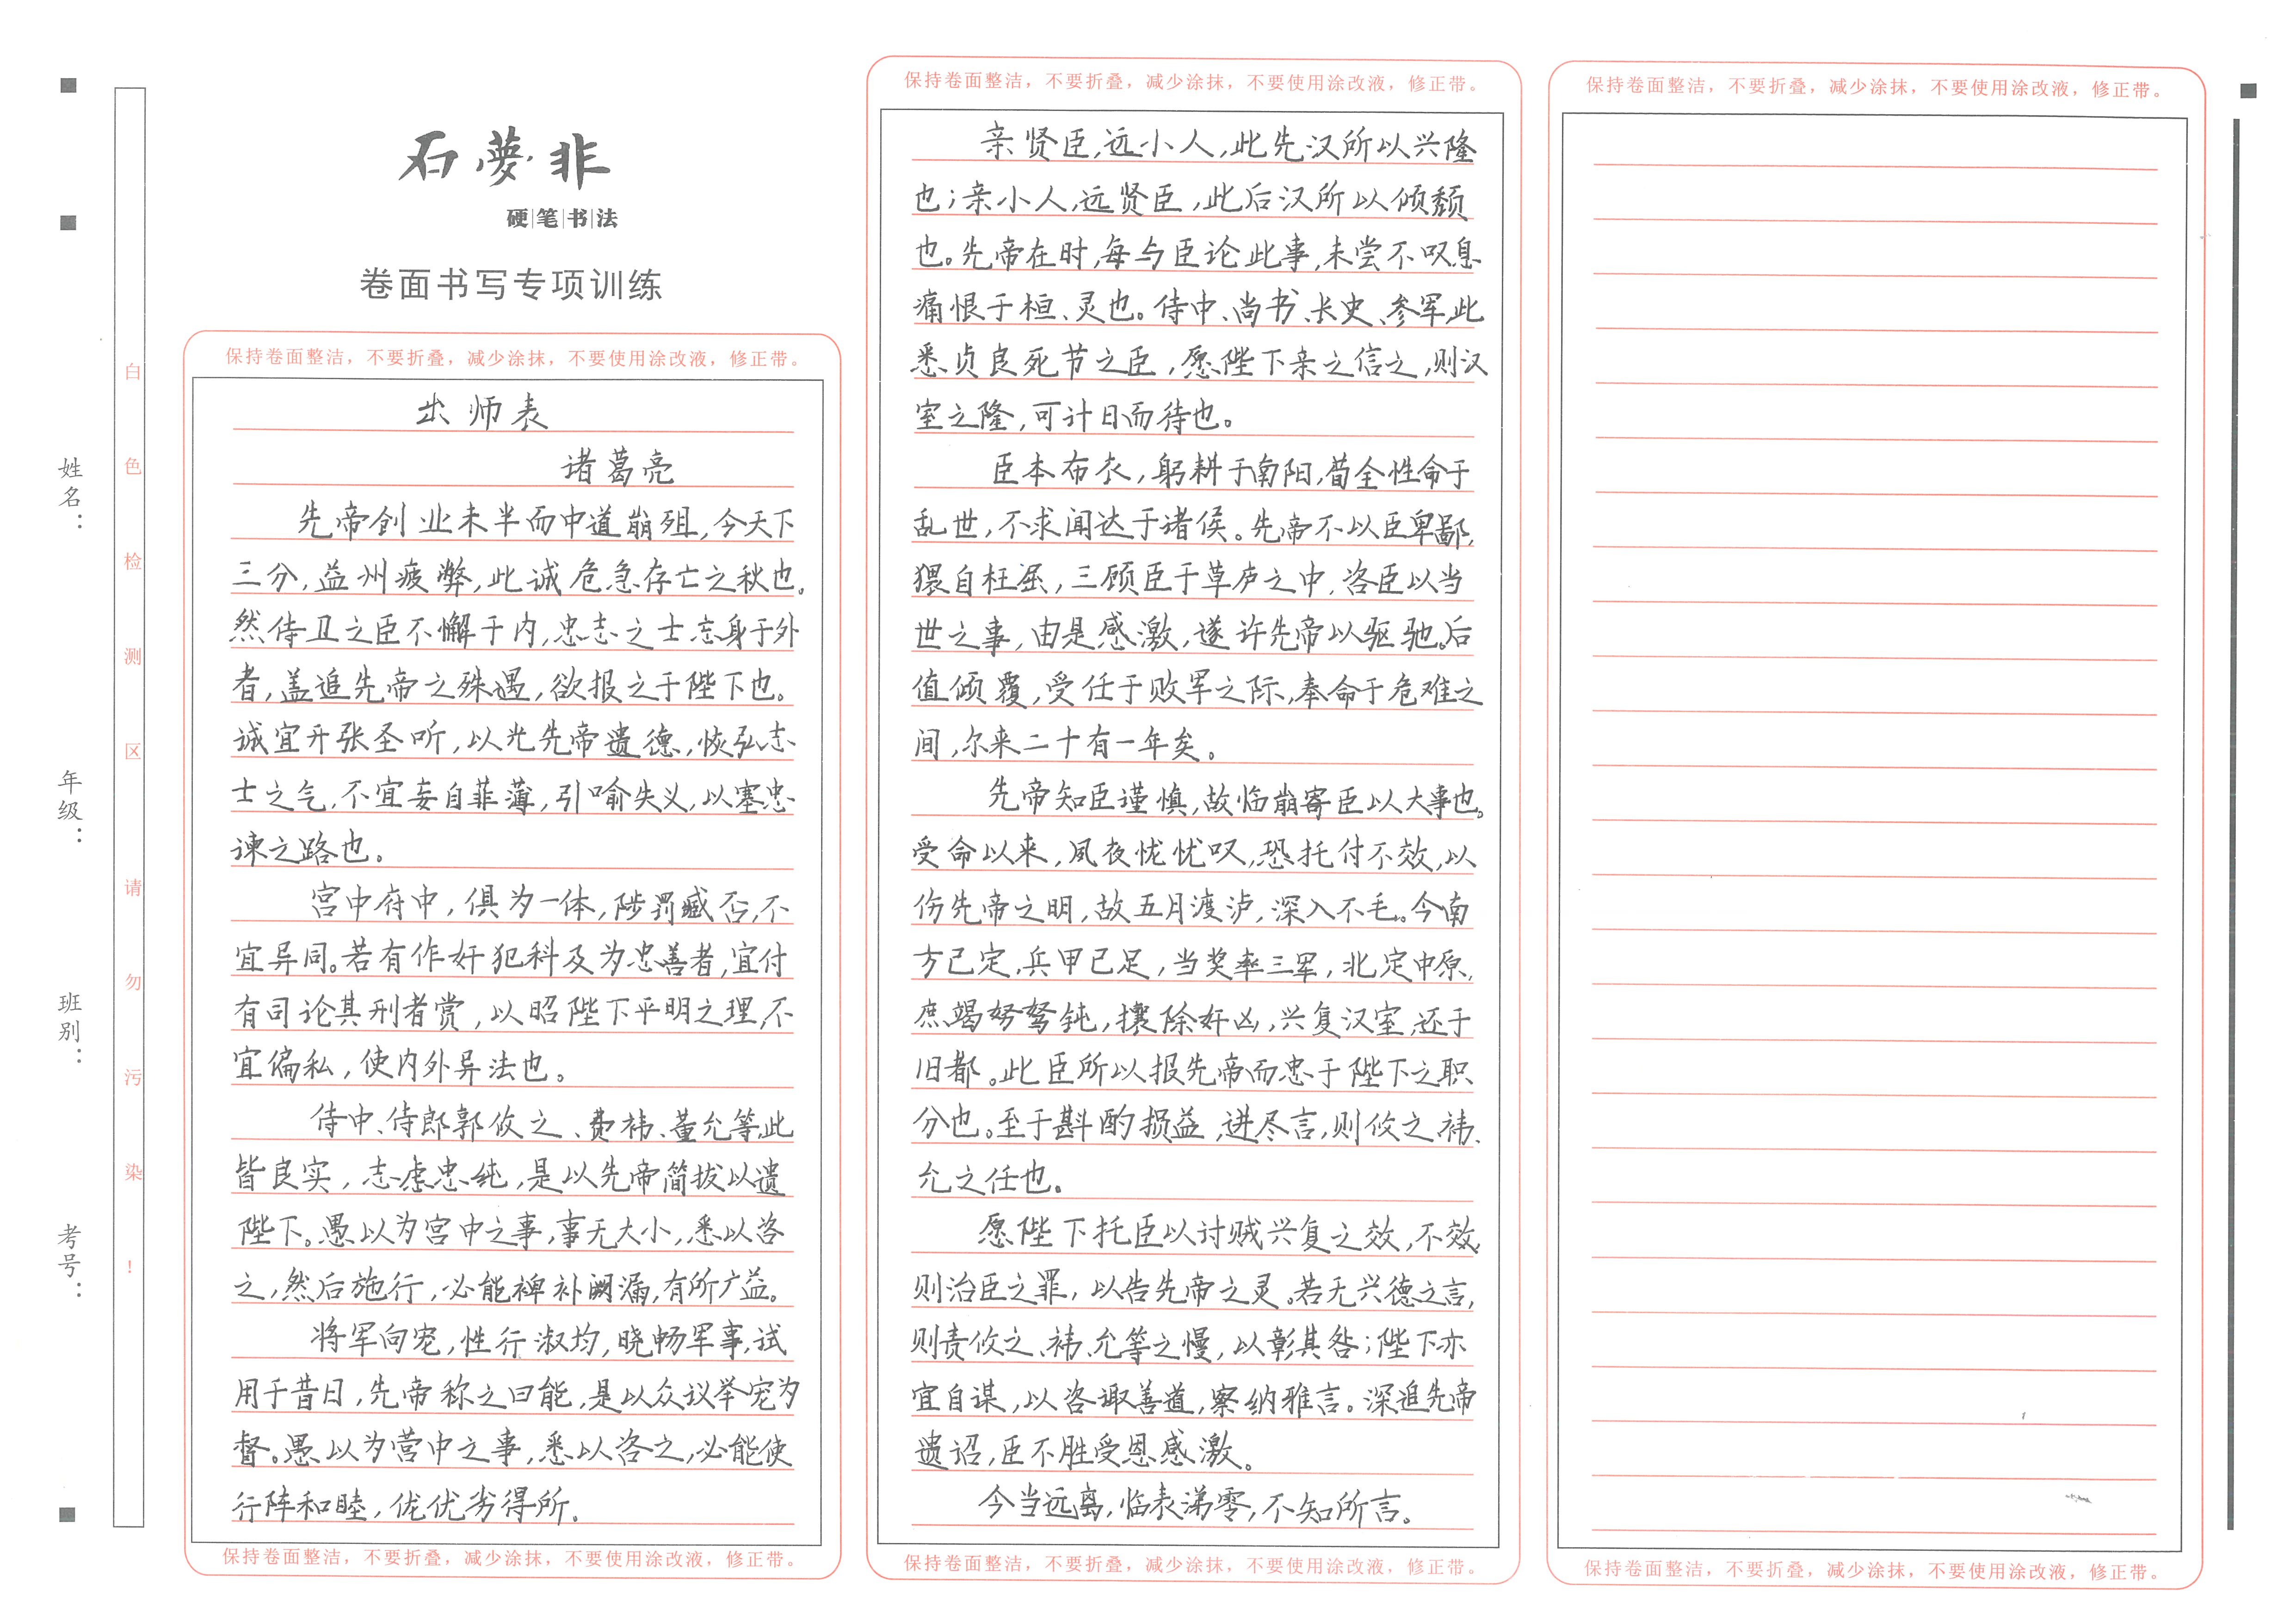 石夢非
硬笔书法
卷面书写专项训练
姓名：
年级：
班别：
考号：
白色检测区请勿污染！
保持卷面整洁，不要折叠，减少涂抹，不要使用涂改液，修正带。
出师表
诸葛亮
先帝创业未半而中道崩殂，今天下
三分，益州疲弊，此诚危急存亡之秋也。
然侍卫之臣不懈于内，忠志之士忘身于外
者，盖追先帝之殊遇，欲报之于陛下也。
诚宜开张圣听，以光先帝遗德，恢弘志
士之气，不宜妄自菲薄，引喻失义，以塞忠
谏之路也。
宫中府中，俱为一体，陟罚臧否，不
宜异同。若有作奸犯科及为忠善者，宜付
有司论其刑者赏，以昭陛下平明之理，不
宜偏私，使内外异法也。
侍中、侍郎郭攸之、费祎、董允等，此
皆良实，志虑忠纯，是以先帝简拔以遗
陛下。愚以为宫中之事，事无大小，悉以咨
之，然后施行，必能裨补阙漏，有所广益。
将军向宠，性行淑均，晓畅军事，试
用于昔日，先帝称之曰能，是以众议举宠为
督。愚以为营中之事，悉以咨之，必能使
行阵和睦，优优劣得所。
保持卷面整洁，不要折叠，减少涂抹，不要使用涂改液，修正带。
保持卷面整洁，不要折叠，减少涂抹，不要使用涂改液，修正带。
亲贤臣，远小人，此先汉所以兴隆
也；亲小人，远贤臣，此后汉所以倾颓
也。先帝在时，每与臣论此事，未尝不叹息
痛恨于桓、灵也。侍中、尚书、长史、参军，此
悉贞良死节之臣，愿陛下亲之信之，则汉
室之隆，可计日而待也。
臣本布衣，躬耕于南阳，苟全性命于
乱世，不求闻达于诸侯。先帝不以臣卑鄙，
猥自枉屈，三顾臣于草庐之中，咨臣以当
世之事，由是感激，遂许先帝以驱驰。后
值倾覆，受任于败军之际，奉命于危难之
间，尔来二十有一年矣。
先帝知臣谨慎，故临崩寄臣以大事也。
受命以来，夙夜忧忧叹，恐托付不效，以
伤先帝之明，故五月渡泸，深入不毛。今南
方已定，兵甲已足，当奖率三军，北定中原，
庶竭努驽钝，攘除奸凶，兴复汉室，还于
旧都。此臣所以报先帝而忠于陛下之职
分也。至于斟酌损益，进尽言，则攸之、祎、
允之任也。
愿陛下托臣以讨贼兴复之效，不效，
则治臣之罪，以告先帝之灵。若无兴德之言，
则责攸之、祎、允等之慢，以彰其咎；陛下亦
宜自谋，以咨诹善道，察纳雅言。深追先帝
遗诏，臣不胜受恩感激。
今当远离，临表涕零，不知所言。
保持卷面整洁，不要折叠，减少涂抹，不要使用涂改液，修正带。
保持卷面整洁，不要折叠，减少涂抹，不要使用涂改液，修正带。
保持卷面整洁，不要折叠，减少涂抹，不要使用涂改液，修正带。